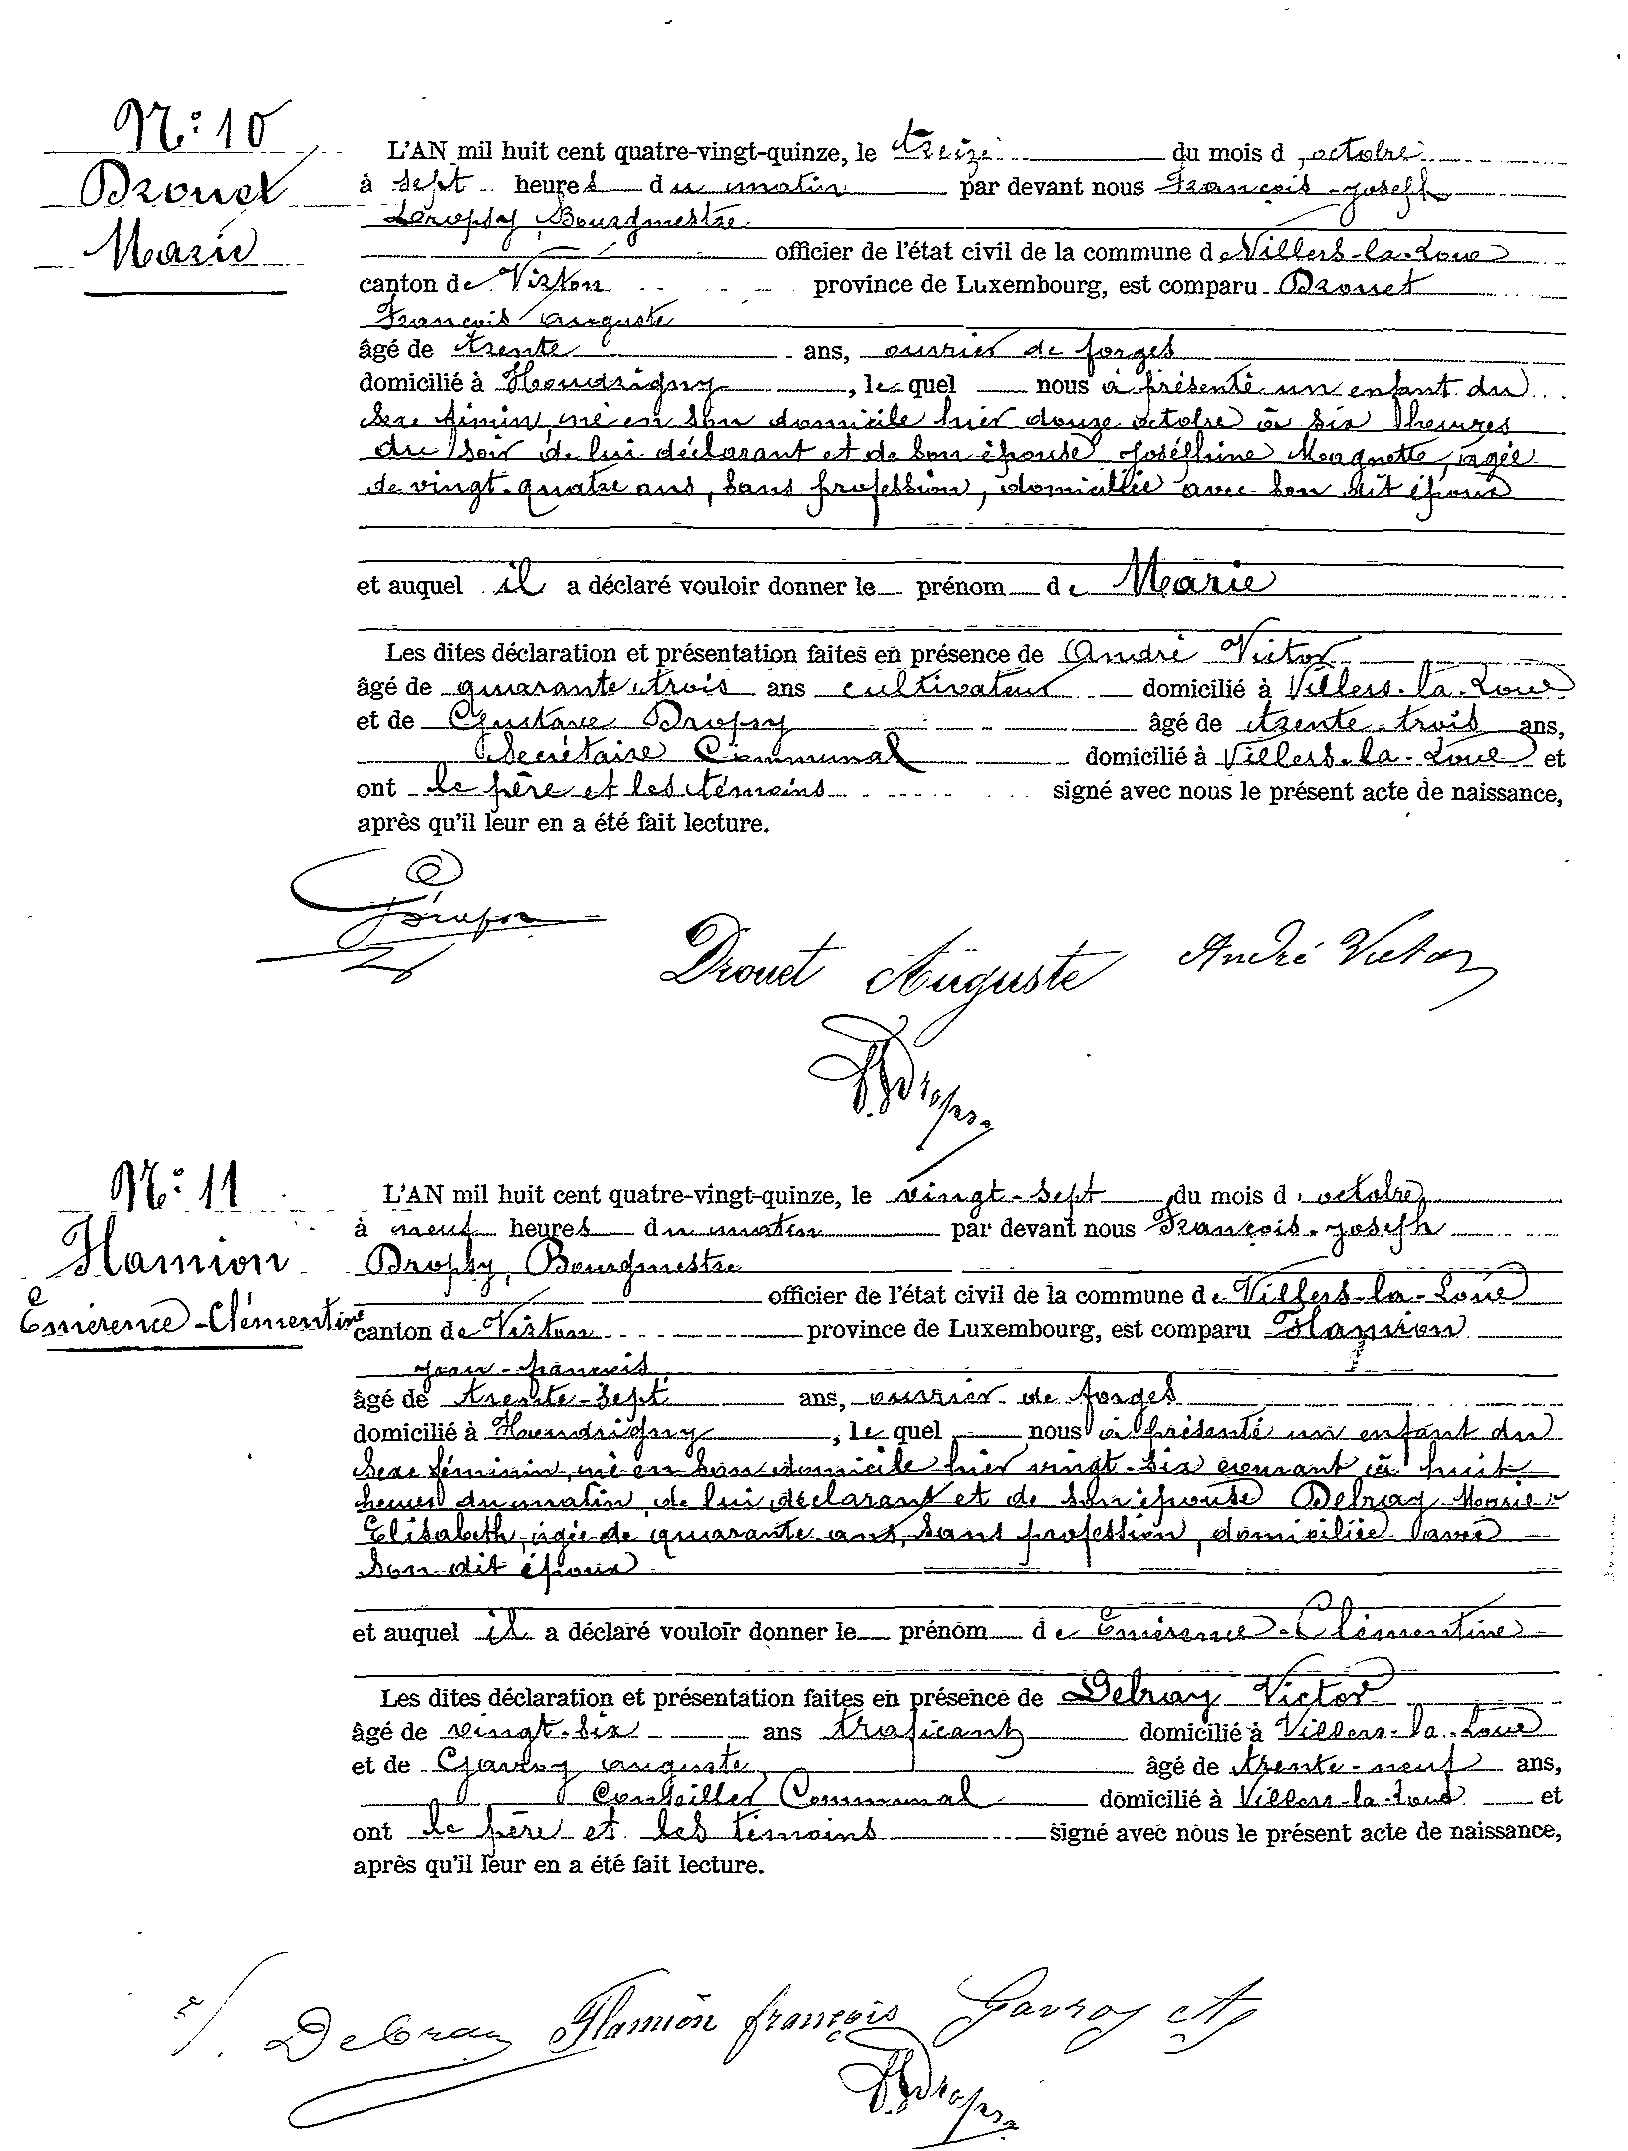 N° 10
Drouet
Marie
L'AN mil huit cent quatre-vingt-quinze, le treize du mois d'octobre
à sept heures du matin par devant nous François-Joseph
Dropsy, Bourgmestre
officier de l'état civil de la commune de Villers-la-Loue
canton de Virton province de Luxembourg, est comparu Drouet
François Auguste
âgé de trente ans, ouvrier de forges
domicilié à Houdrigny, lequel nous a présenté un enfant du
sexe féminin, né en son domicile hier douze octobre à six heures
du soir de lui déclarant et de son épouse Joséphine Maquette, âgée
de vingt-quatre ans, sans profession, domiciliée avec son dit époux
et auquel il a déclaré vouloir donner le prénom de Marie
Les dites déclaration et présentation faites en présence de André Victor
âgé de quarante-trois ans cultivateur domicilié à Villers-la-Loue
et de Gustave Dropsy âgé de trente-trois ans,
Secrétaire Communal domicilié à Villers-la-Loue et
ont le père et les témoins signé avec nous le présent acte de naissance,
après qu'il leur en a été fait lecture.
G Dropsy
Drouet Auguste André Victor
Dropsy
N° 11
Hamion
Emérence-Clémentine
L'AN mil huit cent quatre-vingt-quinze, le vingt-sept du mois d'octobre
à neuf heures du matin par devant nous François-Joseph
Dropsy, Bourgmestre
officier de l'état civil de la commune de Villers-la-Loue
canton de Virton province de Luxembourg, est comparu Hamion
Jean-François
âgé de trente-sept ans, ouvrier de forges
domicilié à Houdrigny, lequel nous a présenté un enfant du
sexe féminin, né en son domicile hier vingt-six courant à huit
heures du matin, de lui déclarant et de son épouse Debray Marie-
Elisabeth, âgée de quarante ans, sans profession, domiciliée avec
son dit époux
et auquel il a déclaré vouloir donner le prénom de Emérence-Clémentine
Les dites déclaration et présentation faites en présence de Debray Victor
âgé de vingt-six ans traficant domicilié à Villers-la-Loue
et de Gavroy Auguste âgé de trente-neuf ans,
Conseiller Communal domicilié à Villers-la-Loue et
ont le père et les témoins signé avec nous le présent acte de naissance,
après qu'il leur en a été fait lecture.
Debray Hamion françois Gavroy A
Dropsy